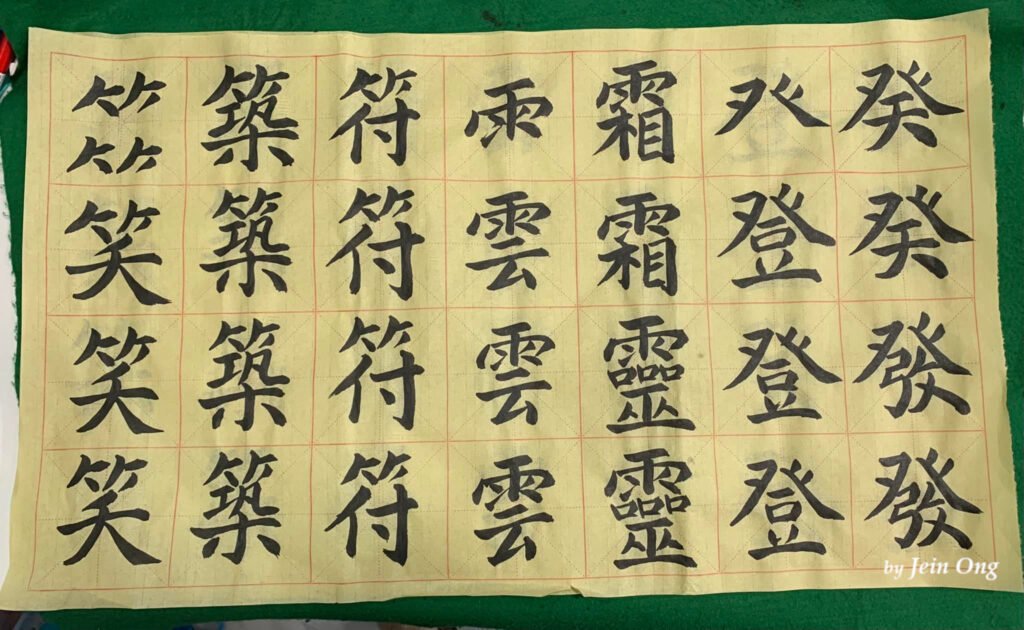 癸癸發發
癶登登登
霜霜靈靈
⻗雲雲雲
符符符符
築築築築
⺮⺮笑笑笑
by Jein Ong